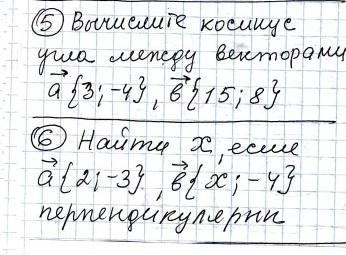 ⑤ Вычислите косинус
угла между векторами
a⃗{3;-4}, b⃗{15;8}
⑥ Найти x, если
a⃗{2;-3}, b⃗{x;-4}
перпендикулярны